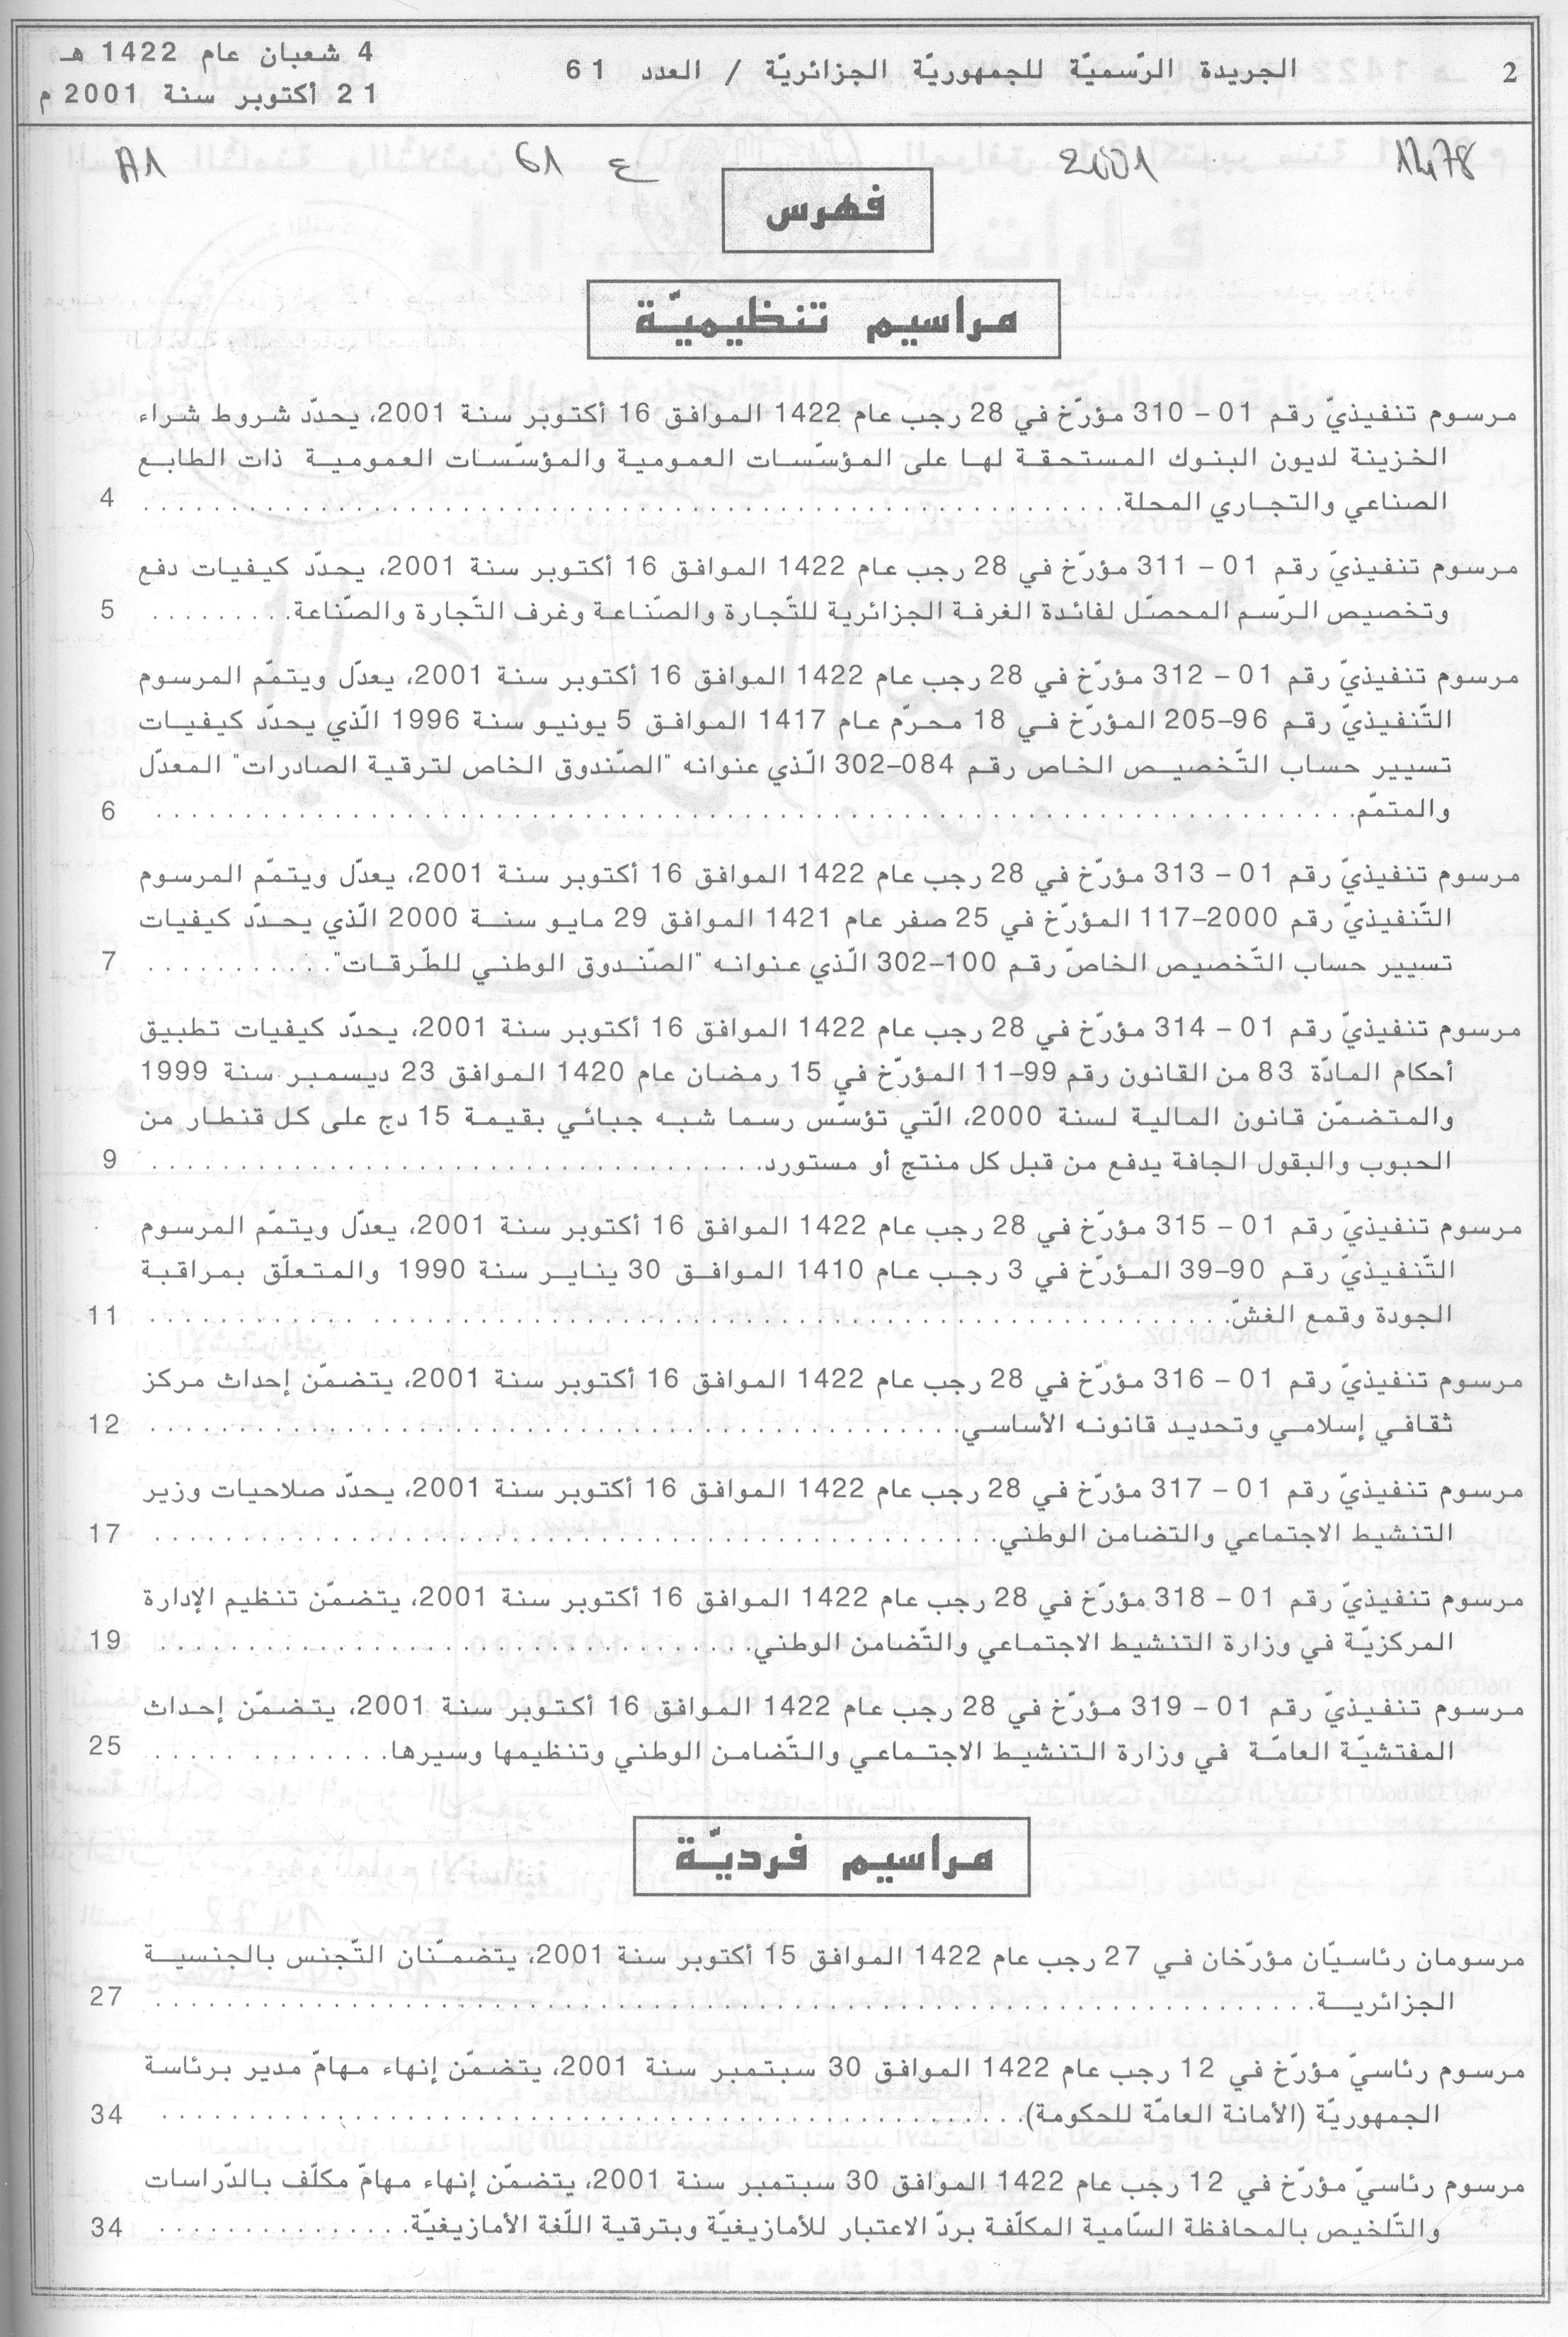 2
الجريدة الرّسميّة للجمهوريّة الجزائريّة / العدد 61
4 شعبان عام 1422 هـ
21 أكتوبر سنة 2001 م
1478
2001
ع 61
A1
فهرس
مراسيم تنظيميّة
مرسوم تنفيذيّ رقم 01 – 310 مؤرّخ في 28 رجب عام 1422 الموافق 16 أكتوبر سنة 2001، يحدّد شروط شراء
الخزينة لديون البنوك المستحقة لها على المؤسّسات العمومية والمؤسّسات العمومية ذات الطابع
الصناعي والتجاري المحلة. 4
مرسوم تنفيذيّ رقم 01 – 311 مؤرّخ في 28 رجب عام 1422 الموافق 16 أكتوبر سنة 2001، يحدّد كيفيات دفع
وتخصيص الرّسم المحصّل لفائدة الغرفة الجزائرية للتّجارة والصّناعة وغرف التّجارة والصّناعة. 5
مرسوم تنفيذيّ رقم 01 – 312 مؤرّخ في 28 رجب عام 1422 الموافق 16 أكتوبر سنة 2001، يعدّل ويتمّم المرسوم
التّنفيذيّ رقم 96–205 المؤرّخ في 18 محرّم عام 1417 الموافق 5 يونيو سنة 1996 الّذي يحدّد كيفيات
تسيير حساب التّخصيص الخاص رقم 084–302 الّذي عنوانه "الصّندوق الخاص لترقية الصادرات" المعدّل
والمتمّم. 6
مرسوم تنفيذيّ رقم 01 – 313 مؤرّخ في 28 رجب عام 1422 الموافق 16 أكتوبر سنة 2001، يعدّل ويتمّم المرسوم
التّنفيذيّ رقم 2000–117 المؤرّخ في 25 صفر عام 1421 الموافق 29 مايو سنة 2000 الّذي يحدّد كيفيات
تسيير حساب التّخصيص الخاصّ رقم 100–302 الّذي عنوانه "الصّندوق الوطني للطّرقات". 7
مرسوم تنفيذيّ رقم 01 – 314 مؤرّخ في 28 رجب عام 1422 الموافق 16 أكتوبر سنة 2001، يحدّد كيفيات تطبيق
أحكام المادّة 83 من القانون رقم 99–11 المؤرّخ في 15 رمضان عام 1420 الموافق 23 ديسمبر سنة 1999
والمتضمّن قانون المالية لسنة 2000، الّتي تؤسّس رسما شبه جبائي بقيمة 15 دج على كل قنطار من
الحبوب والبقول الجافة يدفع من قبل كل منتج أو مستورد. 9
مرسوم تنفيذيّ رقم 01 – 315 مؤرّخ في 28 رجب عام 1422 الموافق 16 أكتوبر سنة 2001، يعدّل ويتمّم المرسوم
التّنفيذيّ رقم 90–39 المؤرّخ في 3 رجب عام 1410 الموافق 30 يناير سنة 1990 والمتعلّق بمراقبة
الجودة وقمع الغشّ. 11
مرسوم تنفيذيّ رقم 01 – 316 مؤرّخ في 28 رجب عام 1422 الموافق 16 أكتوبر سنة 2001، يتضمّن إحداث مركز
ثقافي إسلامي وتحديد قانونه الأساسي. 12
مرسوم تنفيذيّ رقم 01 – 317 مؤرّخ في 28 رجب عام 1422 الموافق 16 أكتوبر سنة 2001، يحدّد صلاحيات وزير
التنشيط الاجتماعي والتضامن الوطني. 17
مرسوم تنفيذيّ رقم 01 – 318 مؤرّخ في 28 رجب عام 1422 الموافق 16 أكتوبر سنة 2001، يتضمّن تنظيم الإدارة
المركزيّة في وزارة التنشيط الاجتماعي والتّضامن الوطني. 19
مرسوم تنفيذيّ رقم 01 – 319 مؤرّخ في 28 رجب عام 1422 الموافق 16 أكتوبر سنة 2001، يتضمّن إحداث
المفتشيّة العامّة في وزارة التنشيط الاجتماعي والتّضامن الوطني وتنظيمها وسيرها. 25
مراسيم فرديّة
مرسومان رئاسيّان مؤرّخان في 27 رجب عام 1422 الموافق 15 أكتوبر سنة 2001، يتضمّنان التّجنس بالجنسية
الجزائرية. 27
مرسوم رئاسيّ مؤرّخ في 12 رجب عام 1422 الموافق 30 سبتمبر سنة 2001، يتضمّن إنهاء مهامّ مدير برئاسة
الجمهوريّة (الأمانة العامّة للحكومة). 34
مرسوم رئاسيّ مؤرّخ في 12 رجب عام 1422 الموافق 30 سبتمبر سنة 2001، يتضمّن إنهاء مهامّ مكلّف بالدّراسات
والتّلخيص بالمحافظة السّامية المكلّفة بردّ الاعتبار للأمازيغيّة وبترقية اللّغة الأمازيغيّة. 34